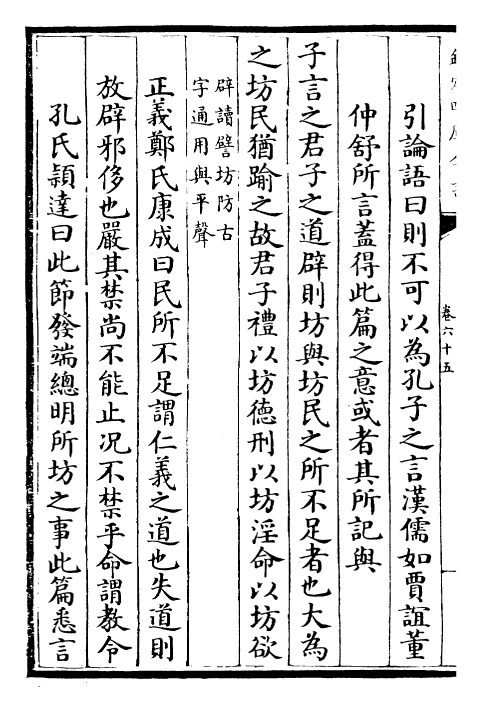 引論語曰則不可以為孔子之言漢儒如賈誼董
仲舒所言蓋得此篇之意或者其所記與
子言之君子之道辟則坊與坊民之所不足者也大為
之坊民猶踰之故君子禮以坊徳刑以坊淫命以坊欲
辟讀譬坊防古
字通用與平聲
正義鄭氏康成曰民所不足謂仁義之道也失道則
放辟邪侈也嚴其禁尚不能止况不禁乎命謂教令
孔氏頴達曰此節發端總明所坊之事此篇悉言
卷六十五